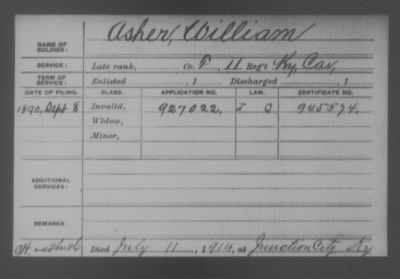 Asher, William
NAME OF SOLDIER:
SERVICE: Late rank, Co. F, 11 Reg't Ky. Cav,
TERM OF SERVICE: Enlisted , 1 Discharged , 1
DATE OF FILING. CLASS. APPLICATION NO. LAW. CERTIFICATE NO.
1890, Sept 8 Invalid, 927022, J O 945574,
Widow,
Minor,
ADDITIONAL SERVICES:
REMARKS:
Died July 11, 1914, at Junction City Ky